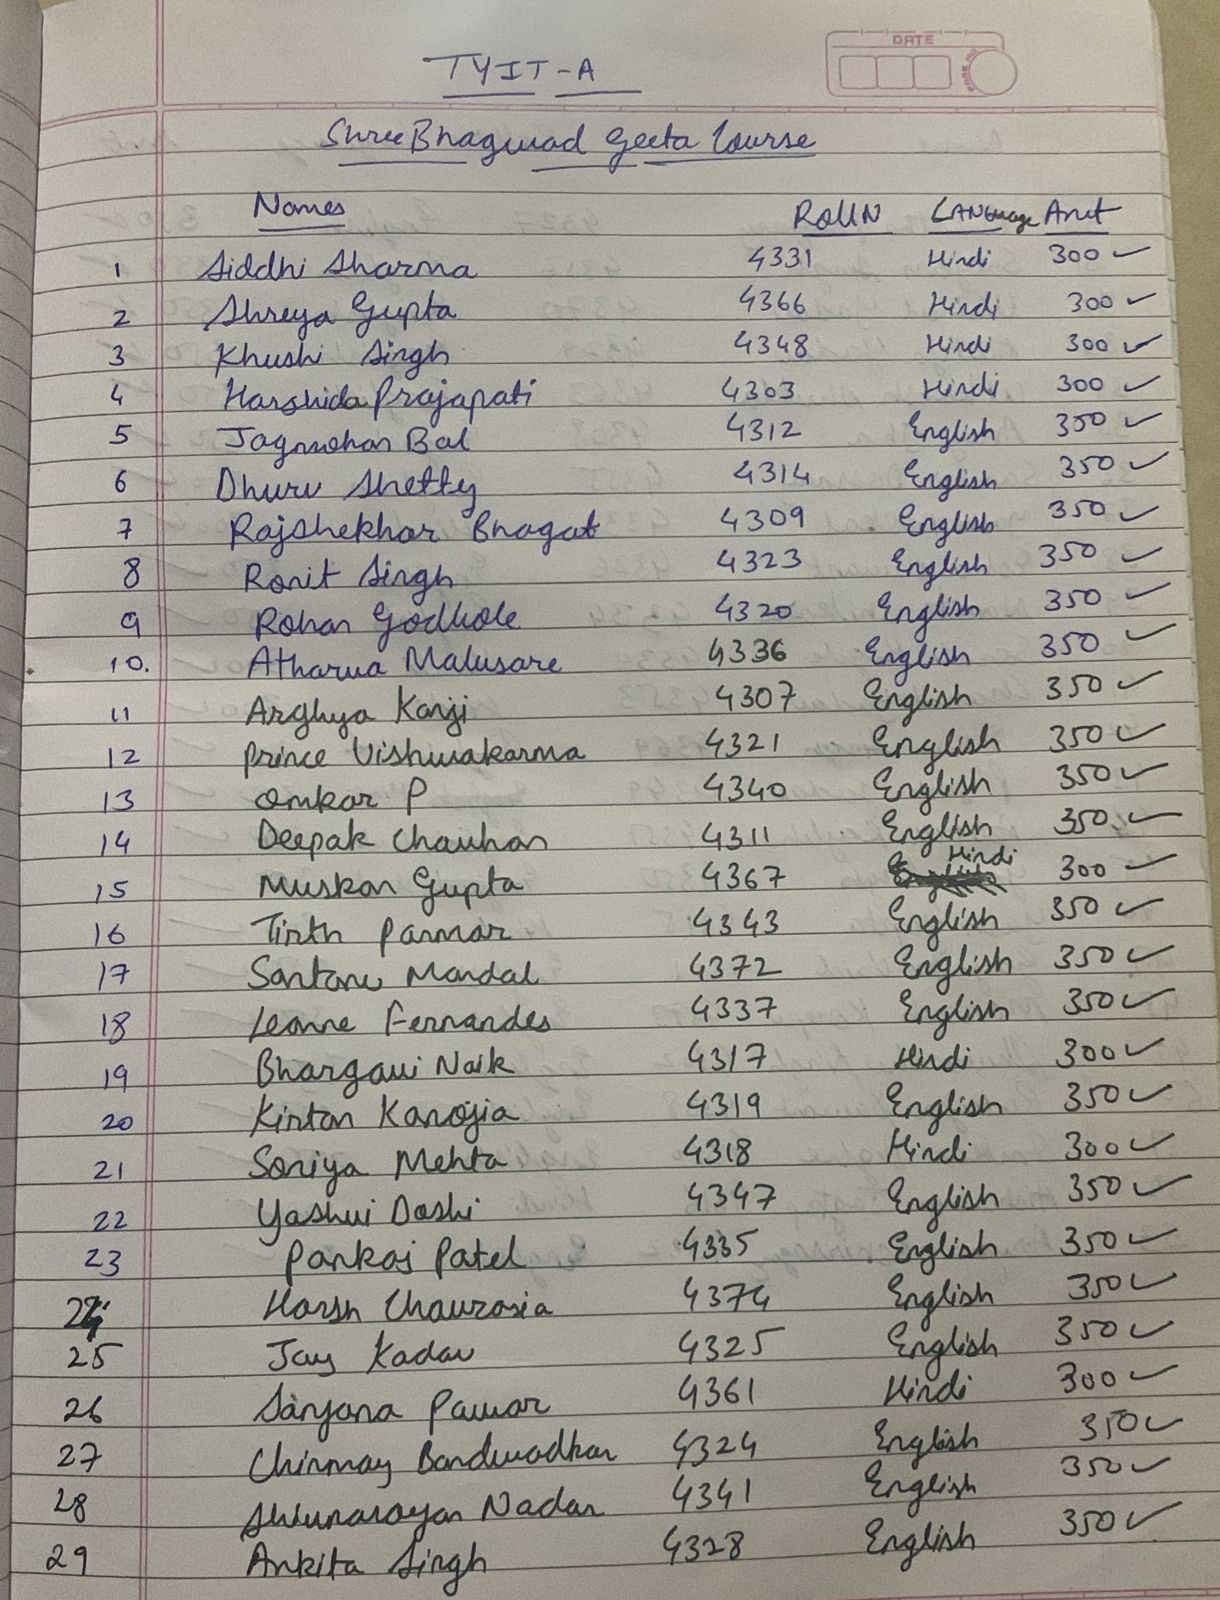 DATE
TYIT-A
Shree Bhagwad Geeta Course
Names RollN Language Amt
1 Siddhi Sharma 4331 Hindi 300 ✓
2 Shreya Gupta 4366 Hindi 300 ✓
3 Khushi Singh 4348 Hindi 300 ✓
4 Harshida Prajapati 4303 Hindi 300 ✓
5 Jagmohan Bal 4312 English 350 ✓
6 Dhuru Shetty 4314 English 350 ✓
7 Rajshekhar Bhagat 4309 English 350 ✓
8 Ronit Singh 4323 English 350 ✓
9 Rohan Godhole 4320 English 350 ✓
10. Atharva Malusare 4336 English 350 ✓
11 Arghya Kanji 4307 English 350 ✓
12 Prince Vishwakarma 4321 English 350 ✓
13 Omkar P 4340 English 350 ✓
14 Deepak Chauhan 4311 English 350 ✓
15 Muskan Gupta 4367 Hindi 300 ✓
16 Tirth Parmar 4343 English 350 ✓
17 Santanu Mandal 4372 English 350 ✓
18 Leanne Fernandes 4337 English 350 ✓
19 Bhargavi Naik 4317 Hindi 300 ✓
20 Kirtan Kanojia 4319 English 350 ✓
21 Soniya Mehta 4318 Hindi 300 ✓
22 Yashvi Doshi 4347 English 350 ✓
23 Pankaj Patel 4335 English 350 ✓
24 Harsh Chaurasia 4374 English 350 ✓
25 Jay Kadav 4325 English 350 ✓
26 Sanjana Pawar 4361 Hindi 300 ✓
27 Chinmay Bandwadkar 4324 English 350 ✓
28 Nadar 4341 English 350 ✓
29 Ankita Singh 4328 English 350 ✓